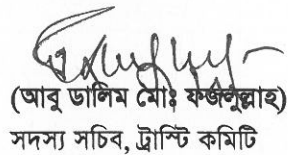 (আবু ডালিম মোঃ ফজলুল্লাহ)
সদস্য সচিব, ট্রাস্টি কমিটি